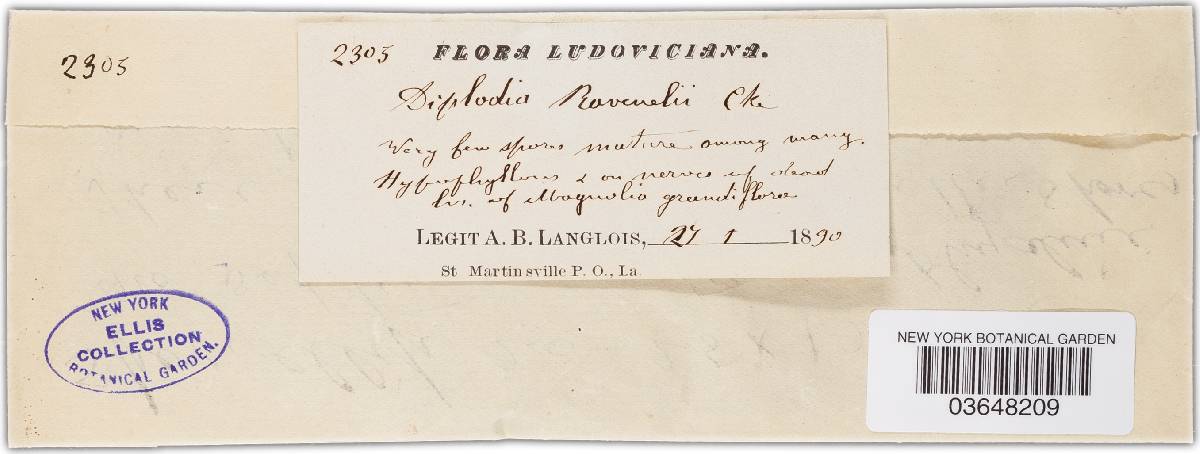 2305
2305 FLORA LUDOVICIANA.
Diplodia Ravenelii Cke
Very few spores mature among many.
Hypophyllous & on nerves of dead
lvs. of Magnolia grandiflora
LEGIT A. B. LANGLOIS, 27 1 1890
St Martinsville P. O., La
NEW YORK
ELLIS
COLLECTION
BOTANICAL GARDEN.
NEW YORK BOTANICAL GARDEN
03648209